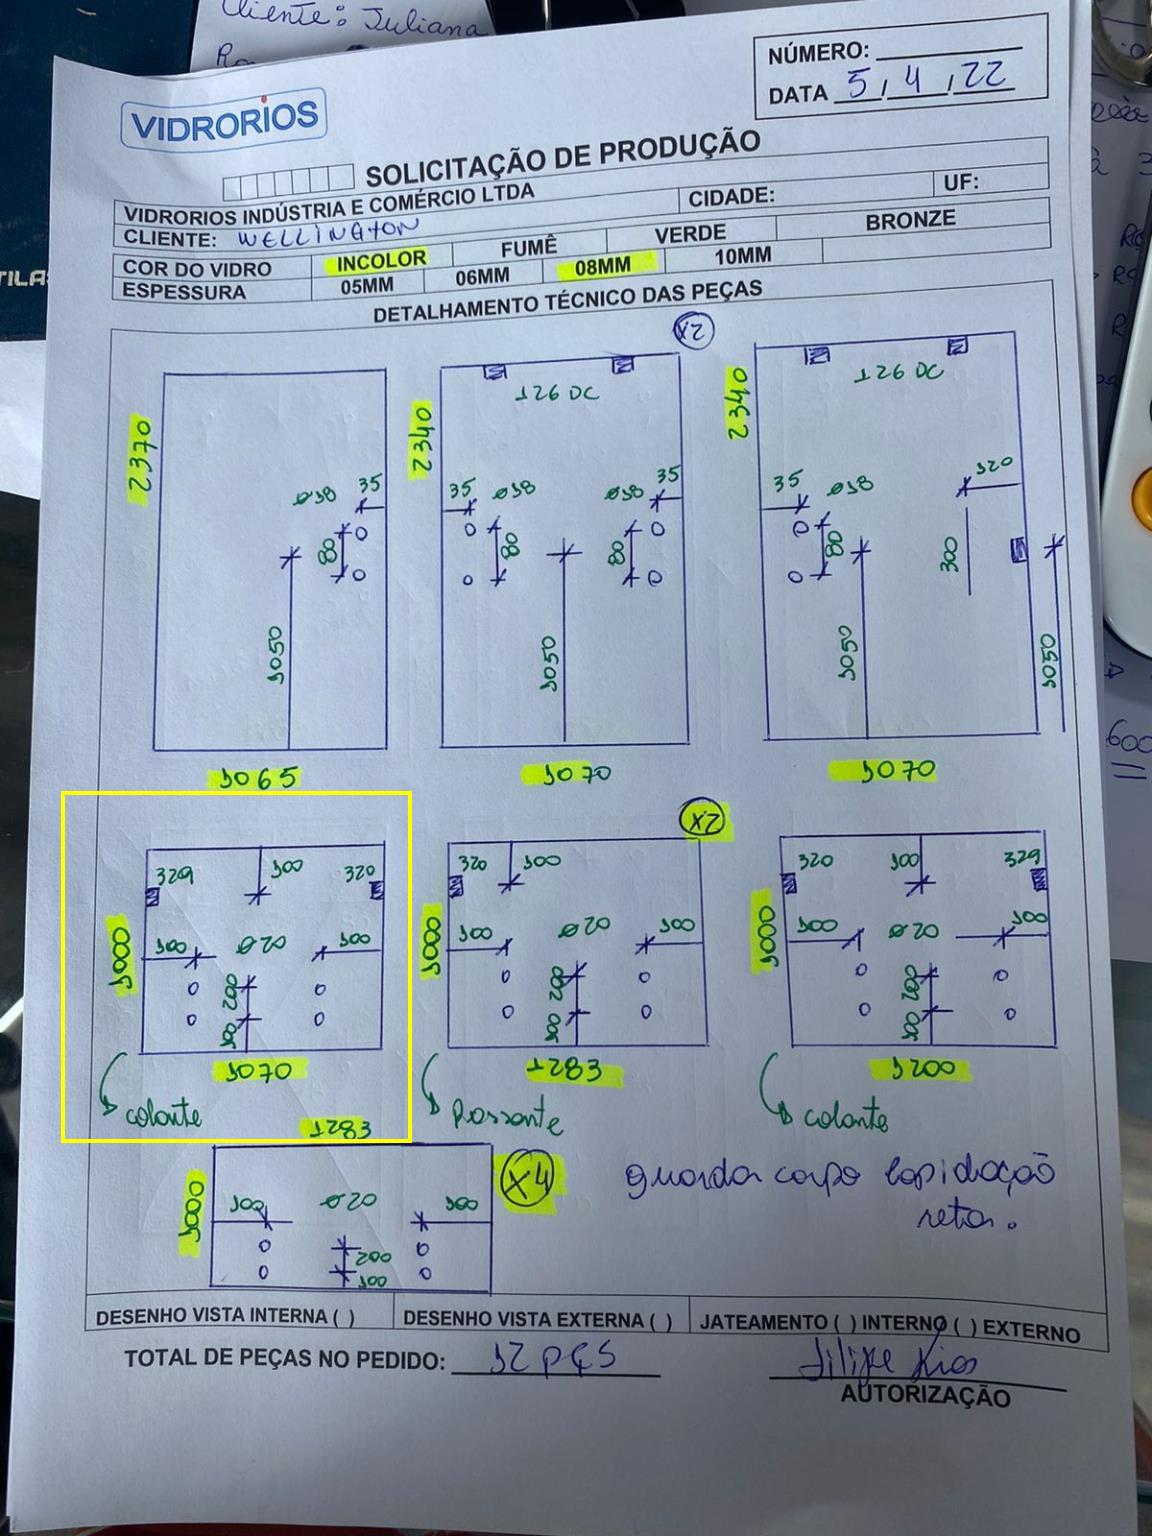 Cliente: Juliana
NÚMERO:
DATA 5 / 4 / 22
VIDRORIOS
SOLICITAÇÃO DE PRODUÇÃO
VIDRORIOS INDÚSTRIA E COMÉRCIO LTDA CIDADE: UF:
CLIENTE: WELLINGTON
COR DO VIDRO INCOLOR FUMÊ VERDE BRONZE
ESPESSURA 05MM 06MM 08MM 10MM
DETALHAMENTO TÉCNICO DAS PEÇAS
2370
35
ø18
80
1050
1065
X2
2340
126 DC
35 ø18
ø18 35
80
80
1050
1070
2340
126 DC
35 ø18
120
80
300
1050
1050
1070
329 100 320
1000
100 ø20 100
200
100
1070
colante
X2
320 100
1000
100 ø20 100
200
100
1283
Passante
320 100 329
1000
100 ø20 100
200
100
1200
colante
1283
1000
100 ø20 100
200
100
X4
guarda corpo lapidação
reta.
DESENHO VISTA INTERNA ( ) DESENHO VISTA EXTERNA ( ) JATEAMENTO ( ) INTERNO ( ) EXTERNO
TOTAL DE PEÇAS NO PEDIDO: 12 PÇS
Filipe Rios
AUTORIZAÇÃO
600